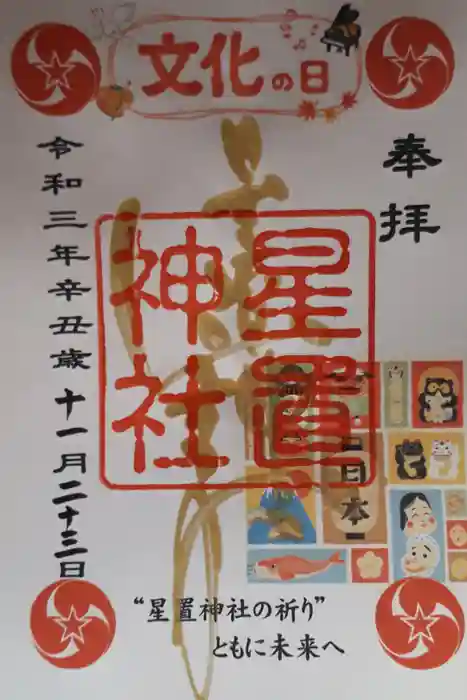 文化の日
奉拝
星置
神社
令和三年辛丑歳十一月二十三日
日本
“星置神社の祈り”
ともに未来へ